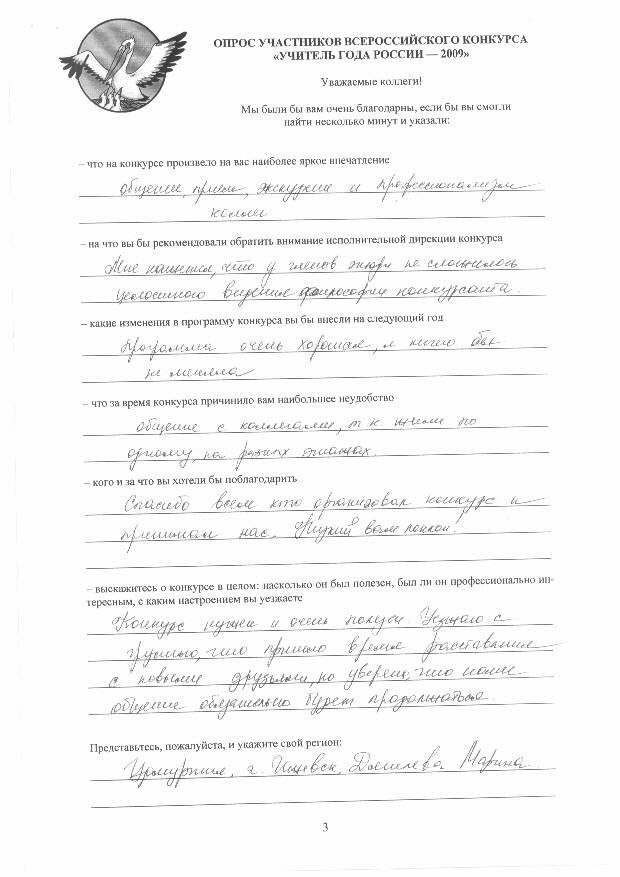 ОПРОС УЧАСТНИКОВ ВСЕРОССИЙСКОГО КОНКУРСА
«УЧИТЕЛЬ ГОДА РОССИИ — 2009»
Уважаемые коллеги!
Мы были бы вам очень благодарны, если бы вы смогли
найти несколько минут и указали:
– что на конкурсе произвело на вас наиболее яркое впечатление
общение, прием, экскурсии и профессионализм
коллег
– на что вы бы рекомендовали обратить внимание исполнительной дирекции конкурса
Мне кажется, что у членов жюри не сложилось
целостного видения философии конкурсанта.
– какие изменения в программу конкурса вы бы внесли на следующий год
Программа очень хорошая, я ничего бы
не меняла
– что за время конкурса причинило вам наибольшее неудобство
общение с коллегами, т к жили по
одному, на разных этажах.
– кого и за что вы хотели бы поблагодарить
Спасибо всем кто организовал конкурс и
принимал нас. Низкий вам поклон!
– выскажитесь о конкурсе в целом: насколько он был полезен, был ли он профессионально ин-
тересным, с каким настроением вы уезжаете
Конкурс нужен и очень полезен. Уезжаю с
грустью, что пришло время расставания
с новыми друзьями, но уверена, что наше
общение обязательно будет продолжаться.
Представьтесь, пожалуйста, и укажите свой регион:
Удмуртия, г. Ижевск, Марина
3